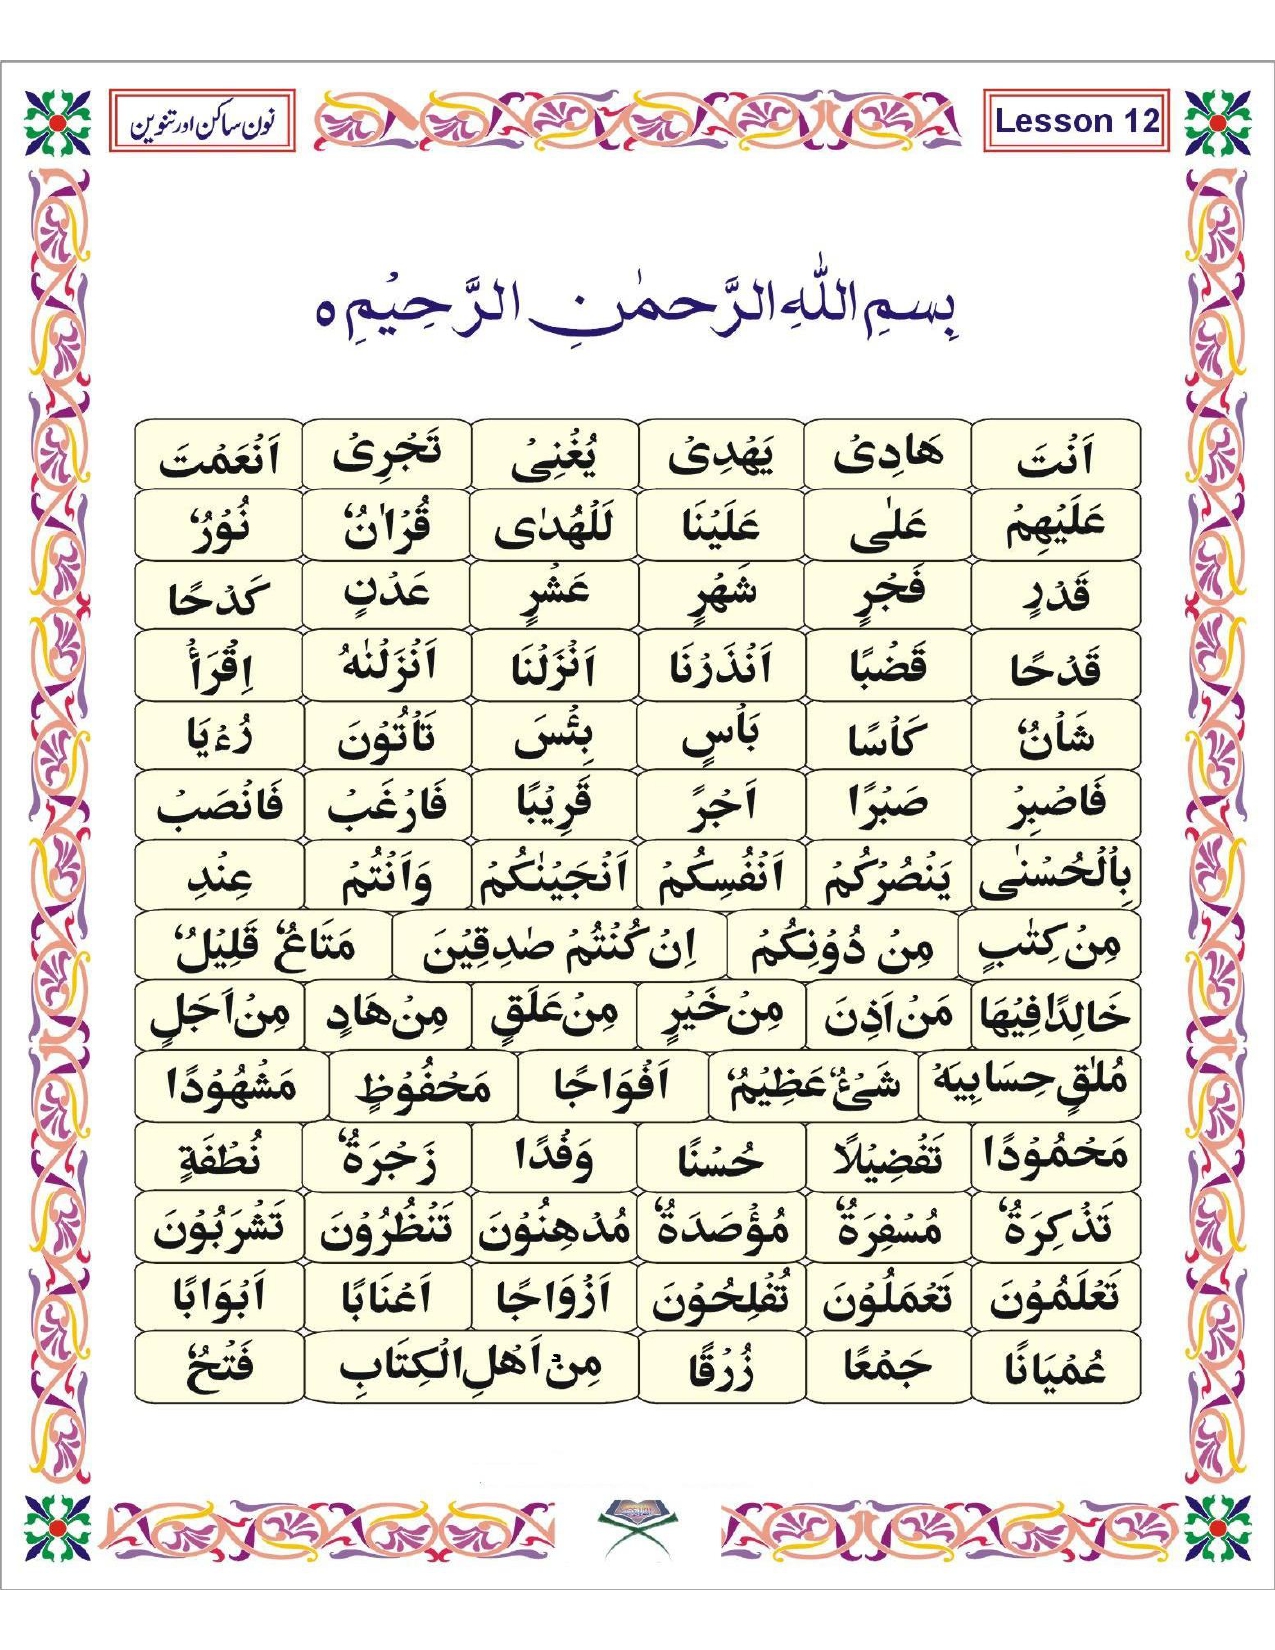 نون ساکن اور تنوین Lesson 12
بِسمِ اللّٰهِ الرَّحمٰنِ الرَّحِيْمِ ہ
اَنْتَ هَادِىْ يَهْدِىْ يُغْنِىْ تَجْرِىْ اَنْعَمْتَ
عَلَيْهِمْ عَلٰى عَلَيْنَا لَلْهُدٰى قُرْاٰنٌ نُوْرٌ
قَدْرٍ فَجْرٍ شَهْرٍ عَشْرٍ عَدْنٍ كَدْحًا
قَدْحًا قَضْبًا اَنْذَرْنَا اَنْزَلْنَا اَنْزَلْنٰهُ اِقْرَأْ
شَاْنٌ كَاْسًا بَاْسٍ بِئْسَ تَاْتُوْنَ رُءْيَا
فَاصْبِرْ صَبْرًا اَجْرً قَرِيْبًا فَارْغَبْ فَانْصَبْ
بِالْحُسْنٰى يَنْصُرْكُمْ اَنْفُسِكُمْ اَنْجَيْنٰكُمْ وَاَنْتُمْ عِنْدِ
مِنْ كِتٰبٍ مِنْ دُوْنِكُمْ اِنْ كُنْتُمْ صٰدِقِيْنَ مَتَاعٌ قَلِيْلٌ
خَالِدًا فِيْهَا مَنْ اَذِنَ مِنْ خَيْرٍ مِنْ عَلَقٍ مِنْ هَادٍ مِنْ اَجَلٍ
مُلٰقٍ حِسَابِيَهْ شَىْءٌ عَظِيْمٌ اَفْوَاجًا مَحْفُوْظٍ مَشْهُوْدًا
مَحْمُوْدًا تَفْضِيْلًا حُسْنًا وَفْدًا زَجْرَةٌ نُطْفَةٍ
تَذْكِرَةٌ مُسْفِرَةٌ مُؤْصَدَةٌ مُدْهِنُوْنَ تَنْظُرُوْنَ تَشْرَبُوْنَ
تَعْلَمُوْنَ تَعْمَلُوْنَ تُفْلِحُوْنَ اَزْوَاجًا اَعْنَابًا اَبْوَابًا
عُمْيَانًا جَمْعًا زُرْقًا مِنْ اَهْلِ الْكِتَابِ فَتْحٌ